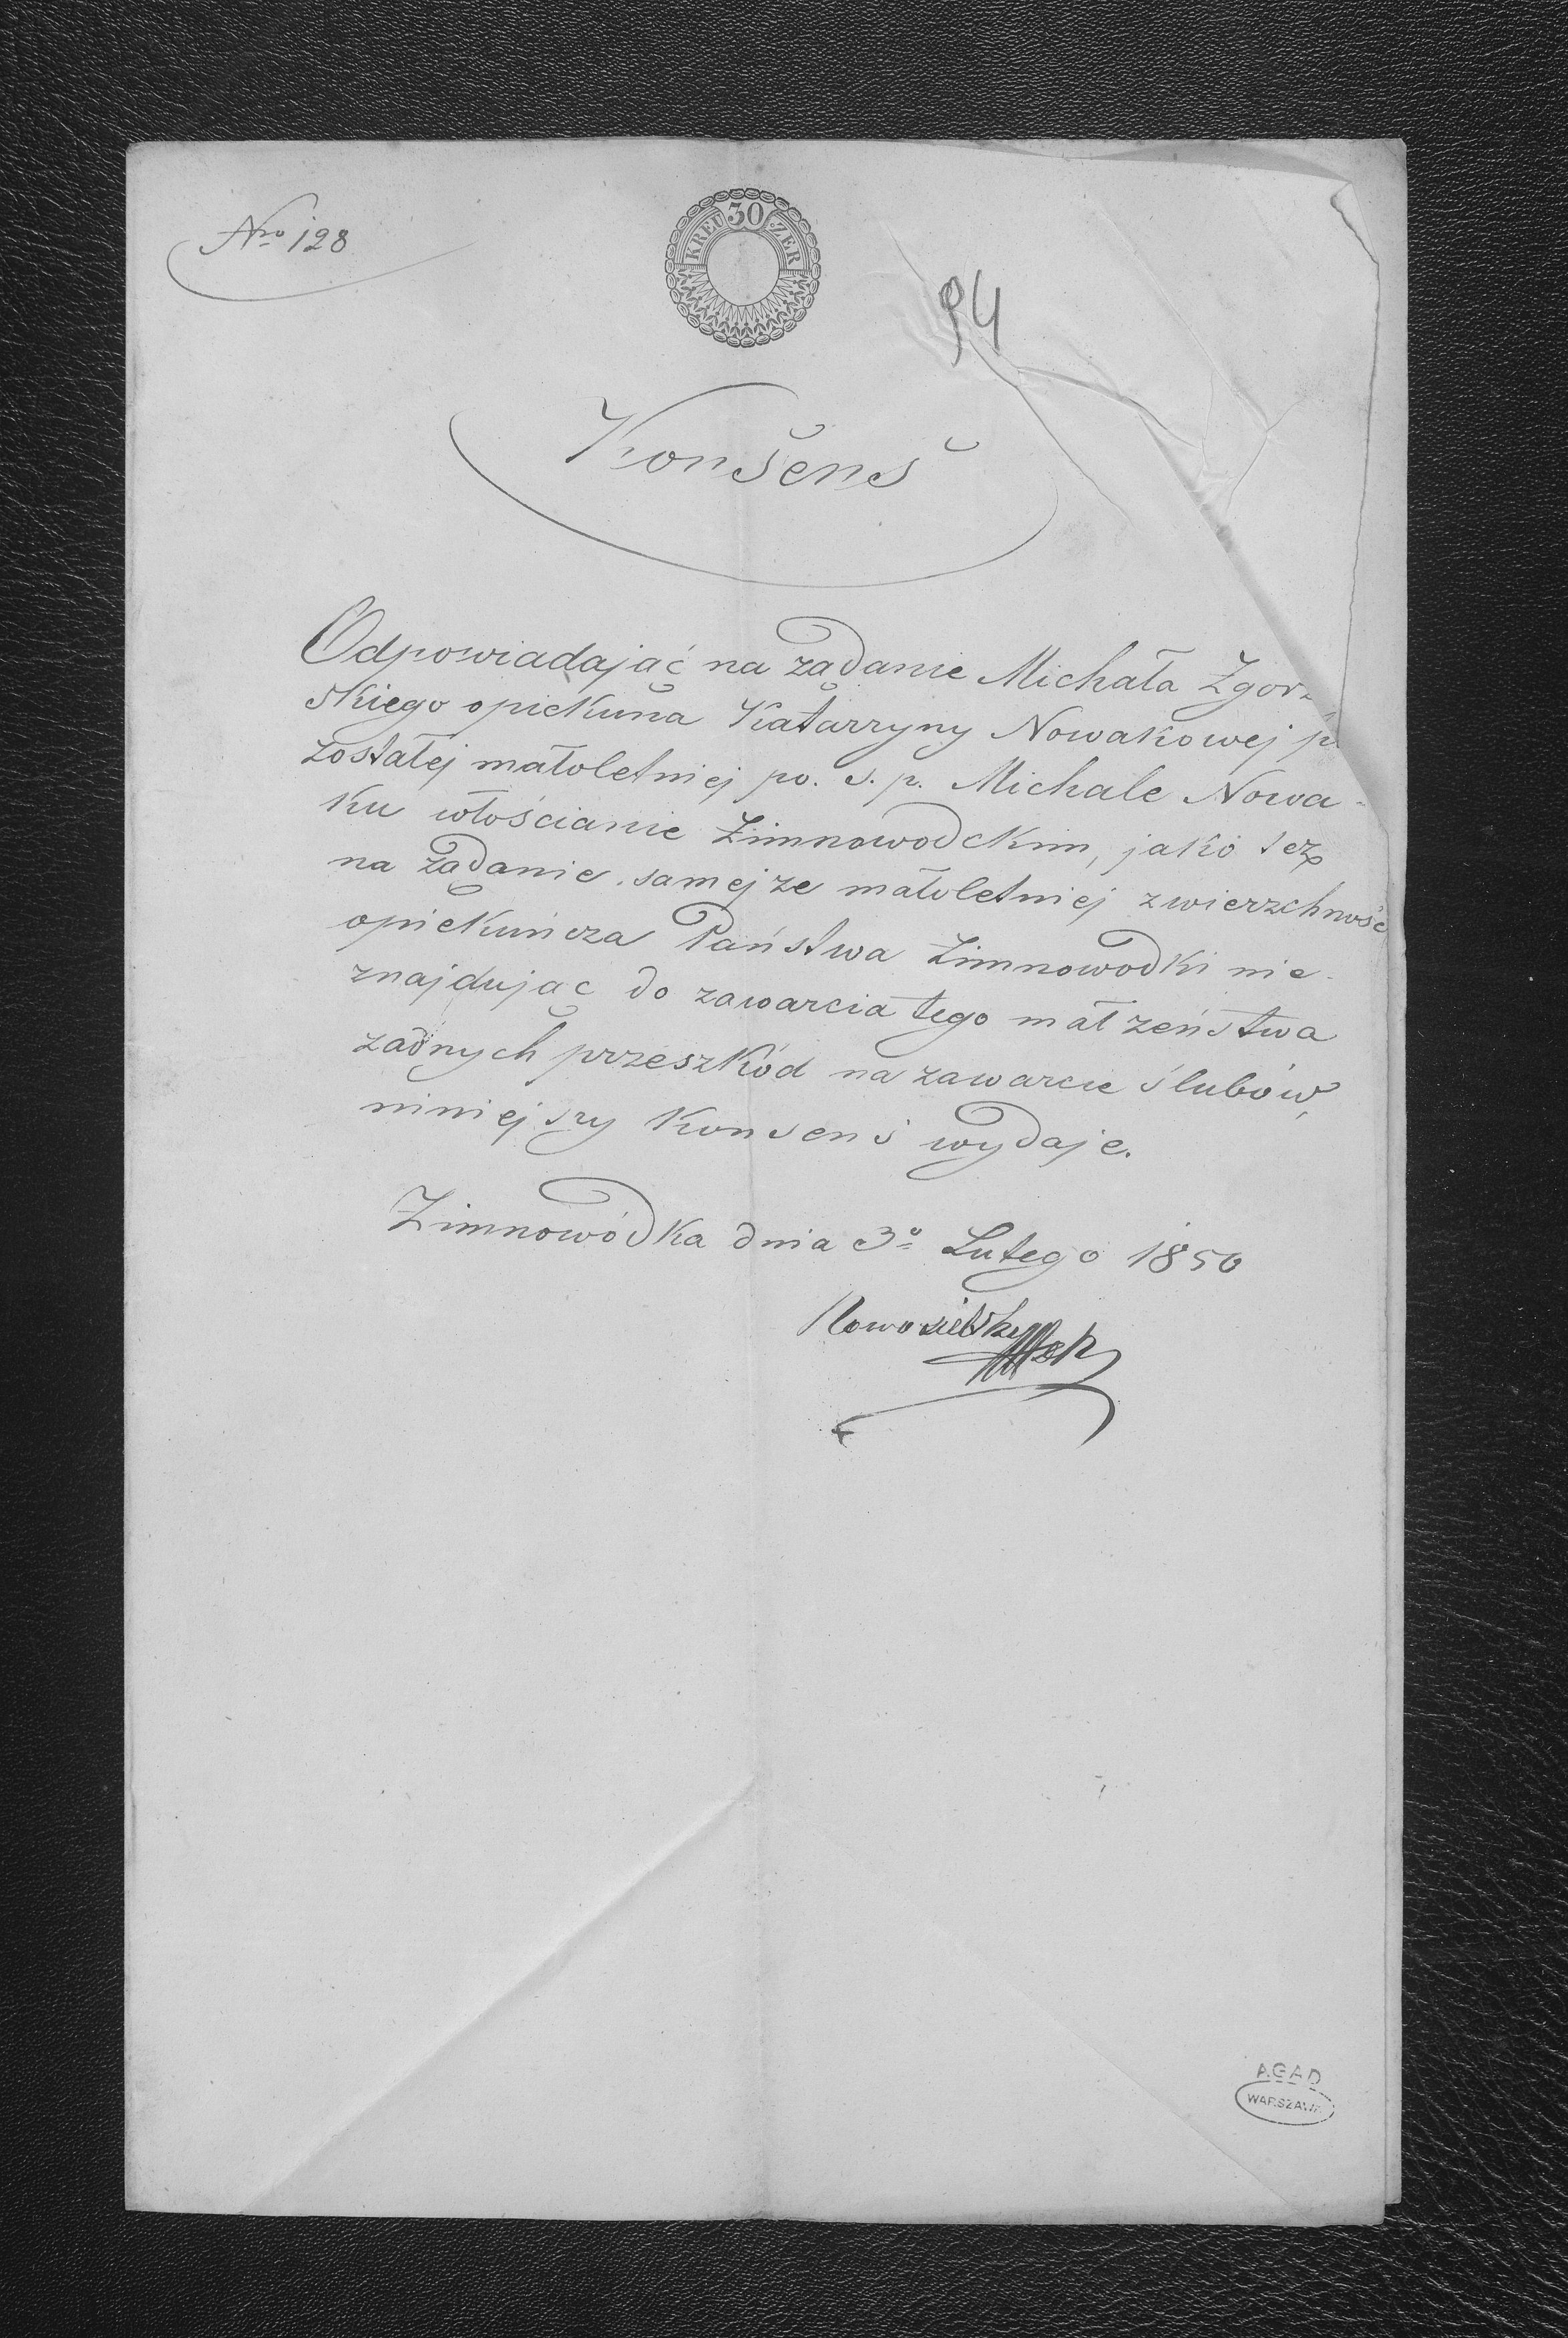 Nro 128
30
KREUZER
94
Konsens
Odpowiadając na żądanie Michała Zgorz
skiego opiekuna Katarzyny Nowakowej p
zostałej małoletniej po. s. p. Michale Nowa-
ku włościanie Zimnowodckim, jako też
na żądanie samejże małoletniej zwierzchność
opiekuńcza Państwa Zimnowodki nie-
znajdując do zawarcia tego małżeństwa
żadnych przeszkód na zawarcie ślubów,
niniejszy Konsens wydaje.
Zimnowódka dnia 3o Lutego 1850
AGAD
WARSZAWA